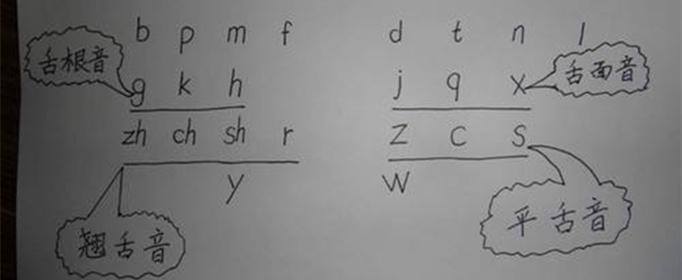 b p m f d t n l
舌根音
g k h j q x
舌面音
zh ch sh r z c s
y w
翘舌音
平舌音